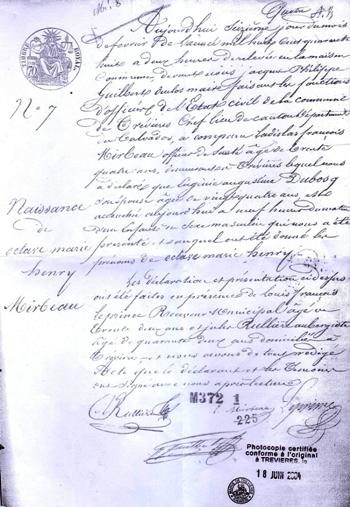 Aujourd'hui Seizième jour du mois
de février de l'année mil huit cent quarante
huit à deux heures de relevée en la maison
Commune devant nous jacques Philippe
Guilbert adjoint maire faisant les fonctions
d'officier de l'Etat civil de la commune
de Trévières Chef lieu de canton Département
du Calvados, a comparu Ladislas françois
Mirbeau officier de Santé âgé de trente
quatre ans, demeurant à Trévières lequel nous
a déclaré que Eugénie augustine Dubosq
Son épouse âgée de vingt quatre ans est
accouchée aujourd'hui à neuf heures du matin
d'un Enfant du Sexe masculin qui nous a été
présenté et auquel ont été donné les
prénoms de octave marie henry
Les déclaration et présentation ci dessus
ont été faites en présence de louis françois
Leprince Receveur Municipal âgé de
trente deux ans et jules Rullier aubergiste
âgé de quarante deux ans domiciliés à
Trévières et nous avons de tout rédigé
acte que le déclarant et les témoins
ont Signé avec nous après lecture
N° 7
Naissance
de
octave marie
henry
Mirbeau
Rullier
L Mirbeau
Leprince
M372 1
225
Photocopie certifiée
conforme à l'original
à TREVIERES, le
18 JUIN 2004